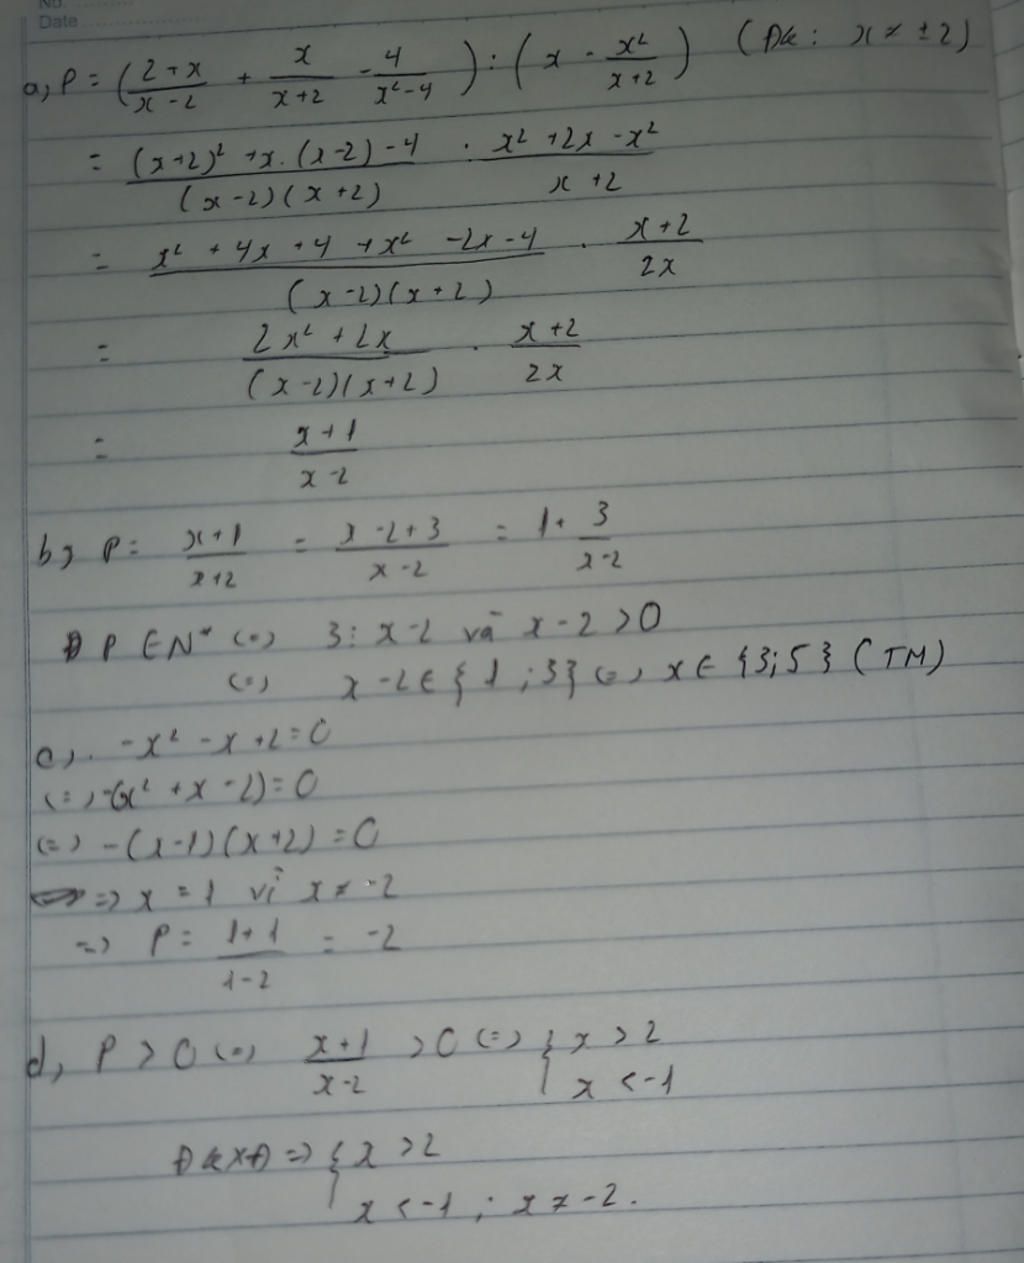 No. ..........
Date ..................
a, P = (2+x/x-2 + x/x+2 - 4/x²-4) : (x - x²/x+2) (Đk: x ≠ ±2)
= (x+2)² + x.(x-2) - 4/(x-2)(x+2) . x² + 2x - x²/x+2
= x² + 4x + 4 + x² - 2x - 4/(x-2)(x+2) . x+2/2x
= 2x² + 2x/(x-2)(x+2) . x+2/2x
= x+1/x-2
b, P = x+1/x+2 = x-2+3/x-2 = 1 + 3/x-2
P ∈ N* (=) 3 ⋮ x-2 và x-2 > 0
(=) x-2 ∈ {1; 3} (=) x ∈ {3; 5} (TM)
c, . -x² - x + 2 = 0
(=) -(x² + x - 2) = 0
(=) -(x-1)(x+2) = 0
=> x = 1 vì x ≠ -2
=> P = 1+1/1-2 = -2
d, P > 0 (=) x+1/x-2 > 0 (=) { x > 2
x < -1
ĐKXĐ => { x > 2
x < -1 ; x ≠ -2.